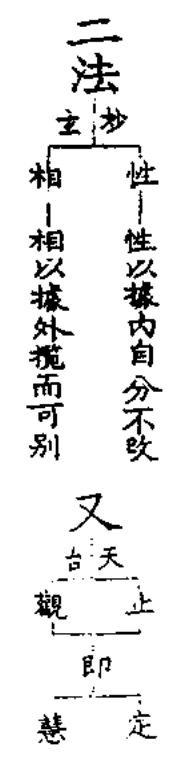 二法
玄抄
性—性以據內自分不改
相—相以據外攬而可別
又
天台
止
觀
即
定
慧